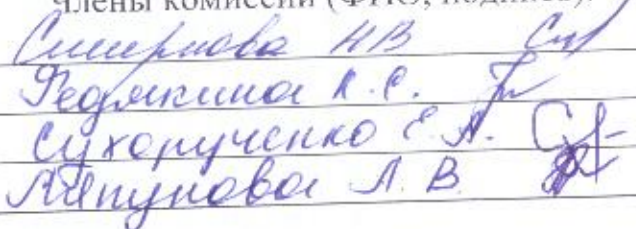 члены комиссии (ФИО, подпись):
Смирнова НВ
Федякина К.С.
Сухорученко Е.А.
Ляпунова Л.В.